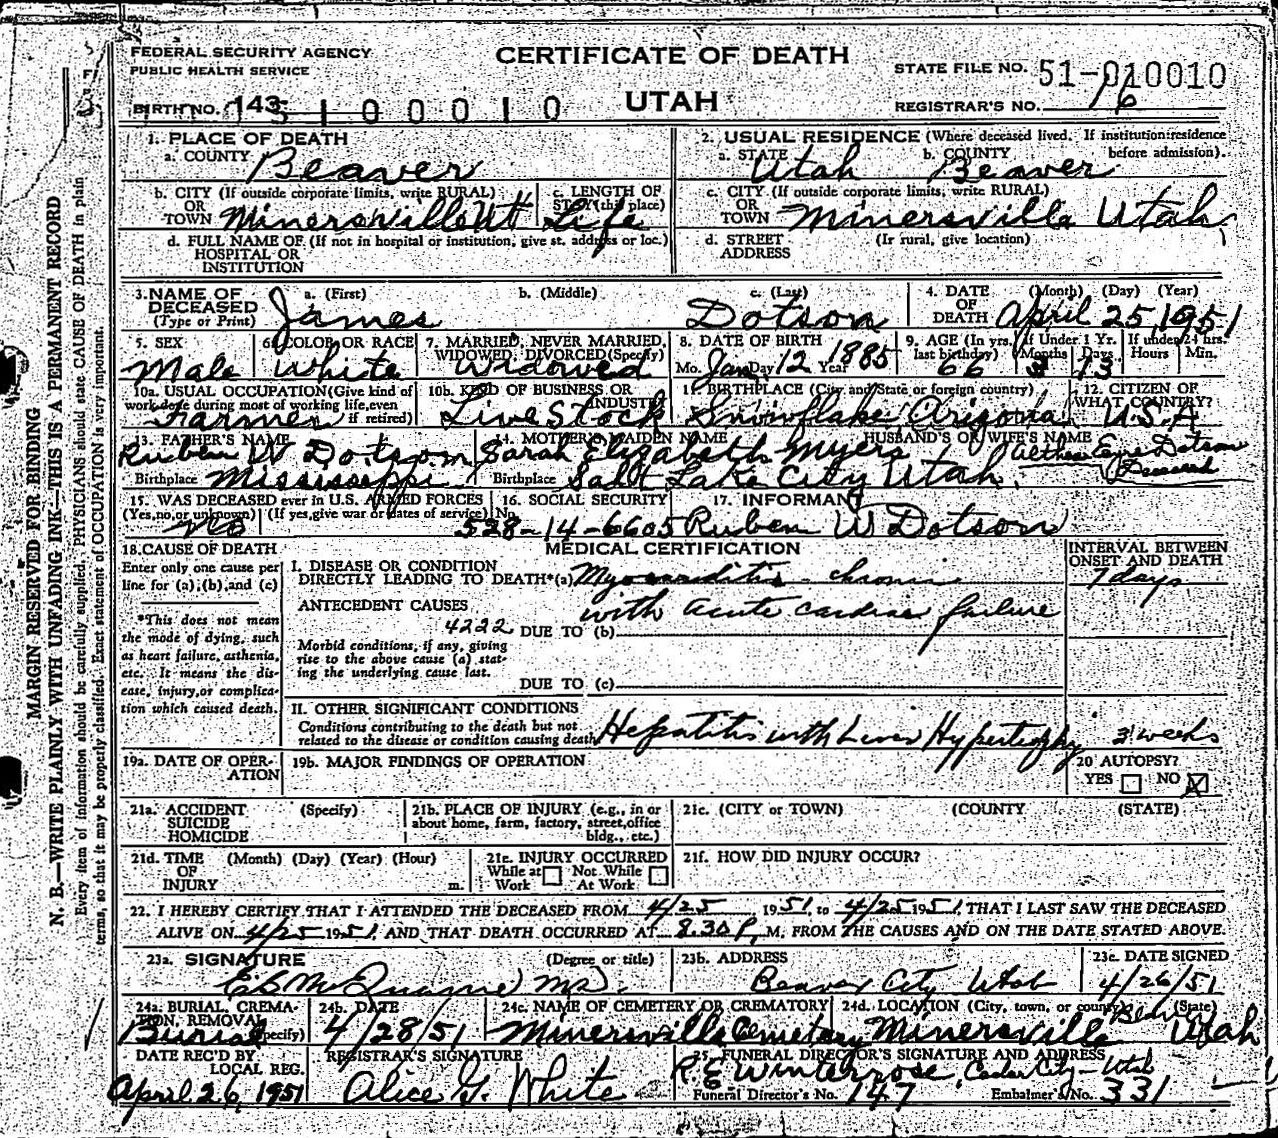 FEDERAL SECURITY AGENCY
PUBLIC HEALTH SERVICE
CERTIFICATE OF DEATH
UTAH
STATE FILE NO. 51-010010
BIRTH NO. 143
REGISTRAR'S NO. 16
1. PLACE OF DEATH
a. COUNTY Beaver
b. CITY (If outside corporate limits, write RURAL) OR TOWN Minersville Ut
c. LENGTH OF STAY (this place) Life
d. FULL NAME OF (If not in hospital or institution, give st. address or loc.) HOSPITAL OR INSTITUTION
2. USUAL RESIDENCE (Where deceased lived. If institution: residence before admission).
a. STATE Utah b. COUNTY Beaver
c. CITY (If outside corporate limits, write RURAL) OR TOWN Minersville Utah
d. STREET ADDRESS (If rural, give location)
3. NAME OF DECEASED (Type or Print) a. (First) James b. (Middle) c. (Last) Dotson
4. DATE OF DEATH (Month) (Day) (Year) April 25, 1951
5. SEX Male
6. COLOR OR RACE White
7. MARRIED, NEVER MARRIED, WIDOWED, DIVORCED (Specify) Widowed
8. DATE OF BIRTH Mo. Jan Day 12 Year 1885
9. AGE (In yrs. last birthday) 66 If Under 1 Yr. Months 3 Days 13 If under 24 hrs. Hours Min.
10a. USUAL OCCUPATION (Give kind of work done during most of working life, even if retired) Farmer
10b. KIND OF BUSINESS OR INDUSTRY Live Stock
11. BIRTHPLACE (City and State or foreign country) Snowflake Arizona
12. CITIZEN OF WHAT COUNTRY? U.S.A
13. FATHER'S NAME Ruben W Dotson
Birthplace Mississippi
14. MOTHER'S MAIDEN NAME Sarah Elizabeth Myers
Birthplace Salt Lake City Utah.
HUSBAND'S OR WIFE'S NAME Althea Eyre Dotson Deceased
15. WAS DECEASED ever in U.S. ARMED FORCES (Yes, no, or unknown) No (If yes, give war or dates of service)
16. SOCIAL SECURITY No. 528-14-6605
17. INFORMANT Ruben W Dotson
18. CAUSE OF DEATH
Enter only one cause per line for (a), (b), and (c)
*This does not mean the mode of dying, such as heart failure, asthenia, etc. It means the disease, injury, or complication which caused death.
MEDICAL CERTIFICATION
INTERVAL BETWEEN ONSET AND DEATH
I. DISEASE OR CONDITION DIRECTLY LEADING TO DEATH* (a) Myocarditis - chronic 7 days
with acute cardiac failure
ANTECEDENT CAUSES
4222 DUE TO (b)
Morbid conditions, if any, giving rise to the above cause (a) stating the underlying cause last.
DUE TO (c)
II. OTHER SIGNIFICANT CONDITIONS
Conditions contributing to the death but not related to the disease or condition causing death Hepatitis with Liver Hypertrophy weeks
19a. DATE OF OPERATION
19b. MAJOR FINDINGS OF OPERATION
20 AUTOPSY? YES NO
21a. ACCIDENT SUICIDE HOMICIDE (Specify)
21b. PLACE OF INJURY (e.g., in or about home, farm, factory, street, office bldg., etc.)
21c. (CITY or TOWN) (COUNTY) (STATE)
21d. TIME OF INJURY (Month) (Day) (Year) (Hour) m.
21e. INJURY OCCURRED While at Work Not While At Work
21f. HOW DID INJURY OCCUR?
22. I HEREBY CERTIFY THAT I ATTENDED THE DECEASED FROM 4/25 1951, to 4/25 1951, THAT I LAST SAW THE DECEASED
ALIVE ON 4/25 1951, AND THAT DEATH OCCURRED AT 8.30 P. M. FROM THE CAUSES AND ON THE DATE STATED ABOVE.
23a. SIGNATURE (Degree or title) MD.
23b. ADDRESS Beaver City Utah
23c. DATE SIGNED 4/26/51
24a. BURIAL, CREMATION, REMOVAL (Specify) Burial
24b. DATE 4/28/51
24c. NAME OF CEMETERY OR CREMATORY Minersville Cemetery
24d. LOCATION (City, town, or county) (State) Minersville Utah
DATE REC'D BY LOCAL REG. April 26, 1951
REGISTRAR'S SIGNATURE Alice G. White
25. FUNERAL DIRECTOR'S SIGNATURE AND ADDRESS R. E Winterrose, Cedar City - Utah
Funeral Director's No. 147 Embalmer's No. 331
MARGIN RESERVED FOR BINDING
N. B.—WRITE PLAINLY WITH UNFADING INK—THIS IS A PERMANENT RECORD
Every item of information should be carefully supplied. PHYSICIANS should state CAUSE OF DEATH in plain
terms, so that it may be properly classified. Exact statement of OCCUPATION is very important.